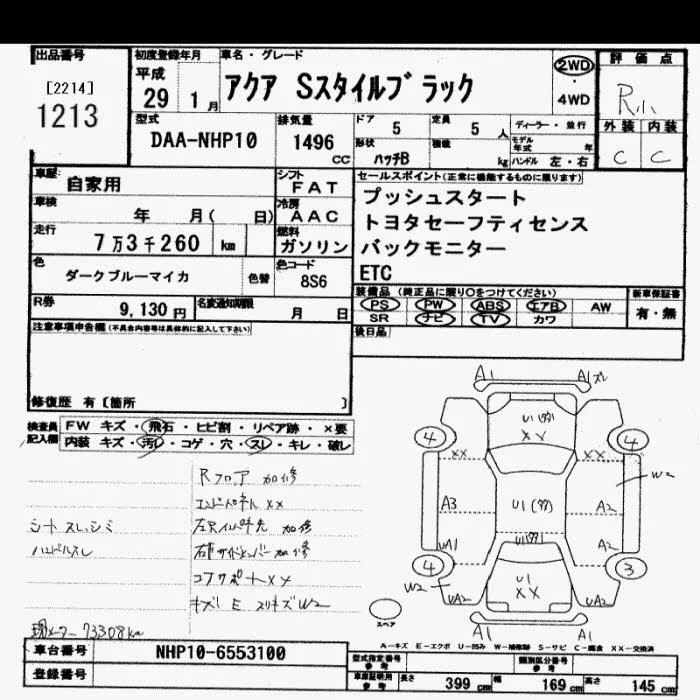 出品番号
[2214]
1213
初度登録年月
平成
29 1月
車名・グレード
アクア Sスタイルブラック
2WD
・
4WD
評価点
R小
外装 内装
C C
型式
DAA-NHP10
排気量
1496
CC
ドア 5
定員 5 人
ディーラー・並行
形状
ハッチB
積載
kg
モデル年式 年
ハンドル 左・右
車歴
自家用
シフト
FAT
セールスポイント(正常に機能するものに限ります)
プッシュスタート
トヨタセーフティセンス
バックモニター
ETC
車検
年 月( 日)
冷房
AAC
走行
7万3千260 km
燃料
ガソリン
色
ダークブルーマイカ
色替
色コード
8S6
装備品 (純正品に限り○をつけてください)
PS PW ABS エアB AW
SR ナビ TV カワ
新車保証書
有・無
R券
9,130円
名変通知期限
月 日
後日品
注意事項申告欄(不具合内容等は具体的に記入して下さい)
修復歴 有〔箇所 〕
検査員記入欄
FW キズ・飛石・ヒビ割・リペア跡・×要
内装 キズ・汚レ・コゲ・穴・スレ・キレ・破レ
Rフロア 加修
エンドパネル XX
シートスレ、シミ
ハンドルスレ
コアサポートXX
現メーター 73308km
A1 A1
U1
XX
4 4
XX XX
W2
A3 U1 A2
UA1 A2
4 3
W2
U1
XX
UA2 UA2
A1 A1
スペア
A-キズ E-エクボ U-凹み W-補修跡 S-サビ C-腐食 XX-交換済
車台番号
NHP10-6553100
登録番号
型式指定番号
参考
類別区分番号
参考
車庫証明用
参考
長さ 399 cm 幅 169 cm 高さ 145 cm